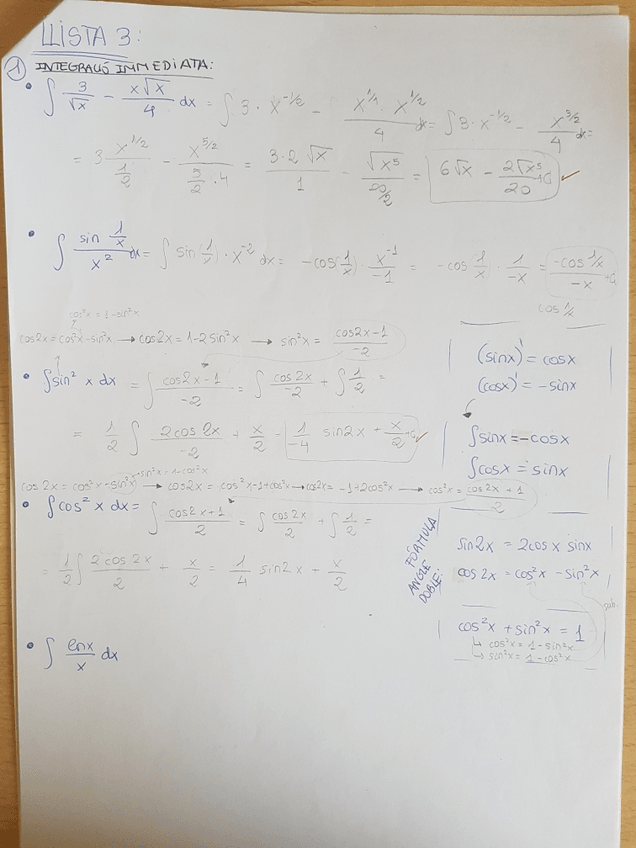 LLISTA 3:
① INTEGRACIÓ IMMEDIATA:
• ∫ 3/√x − x√x/4 dx = ∫ 3 · x^(-1/2) − x^(1/1) · x^(1/2)/4 dx = ∫ 3 · x^(-1/2) − x^(3/2)/4 dx =
= 3 x^(1/2)/(1/2) − x^(5/2)/(5/2 · 4) = 3·2√x/1 − √x⁵/(20/2) = 6√x − 2√x⁵/20 + C ✓
• ∫ sin 1/x / x² dx = ∫ sin(1/x) · x⁻² dx = −cos(1/x) · x⁻¹/−1 = −cos(1/x) · 1/−x = −cos 1/x / −x + C
cos 1/x
cos²x = 1−sin²x
cos2x = cos²x − sin²x → cos2x = 1−2sin²x → sin²x = cos2x−1/−2
• ∫ sin² x dx = ∫ cos2x−1/−2 = ∫ cos2x/−2 + ∫ 1/2 =
= 1/2 ∫ 2cos2x/−2 + x/2 = 1/−4 sin2x + x/2 + C ✓
−sin²x = 1−cos²x
cos2x = cos²x − sin²x → cos2x = cos²x−1+cos²x → cos2x = −1+2cos²x → cos²x = cos2x+1/2
• ∫ cos² x dx = ∫ cos2x+1/2 = ∫ cos2x/2 + ∫ 1/2 =
= 1/2 ∫ 2cos2x/2 + x/2 = 1/4 sin2x + x/2
• ∫ lnx/x dx
(sinx)' = cosx
(cosx)' = −sinx
∫sinx = −cosx
∫cosx = sinx
FÓRMULA
ANGLE
DOBLE:
sin2x = 2cosx sinx
cos2x = cos²x − sin²x
sub.
cos²x + sin²x = 1
↳ cos²x = 1−sin²x
↳ sin²x = 1−cos²x